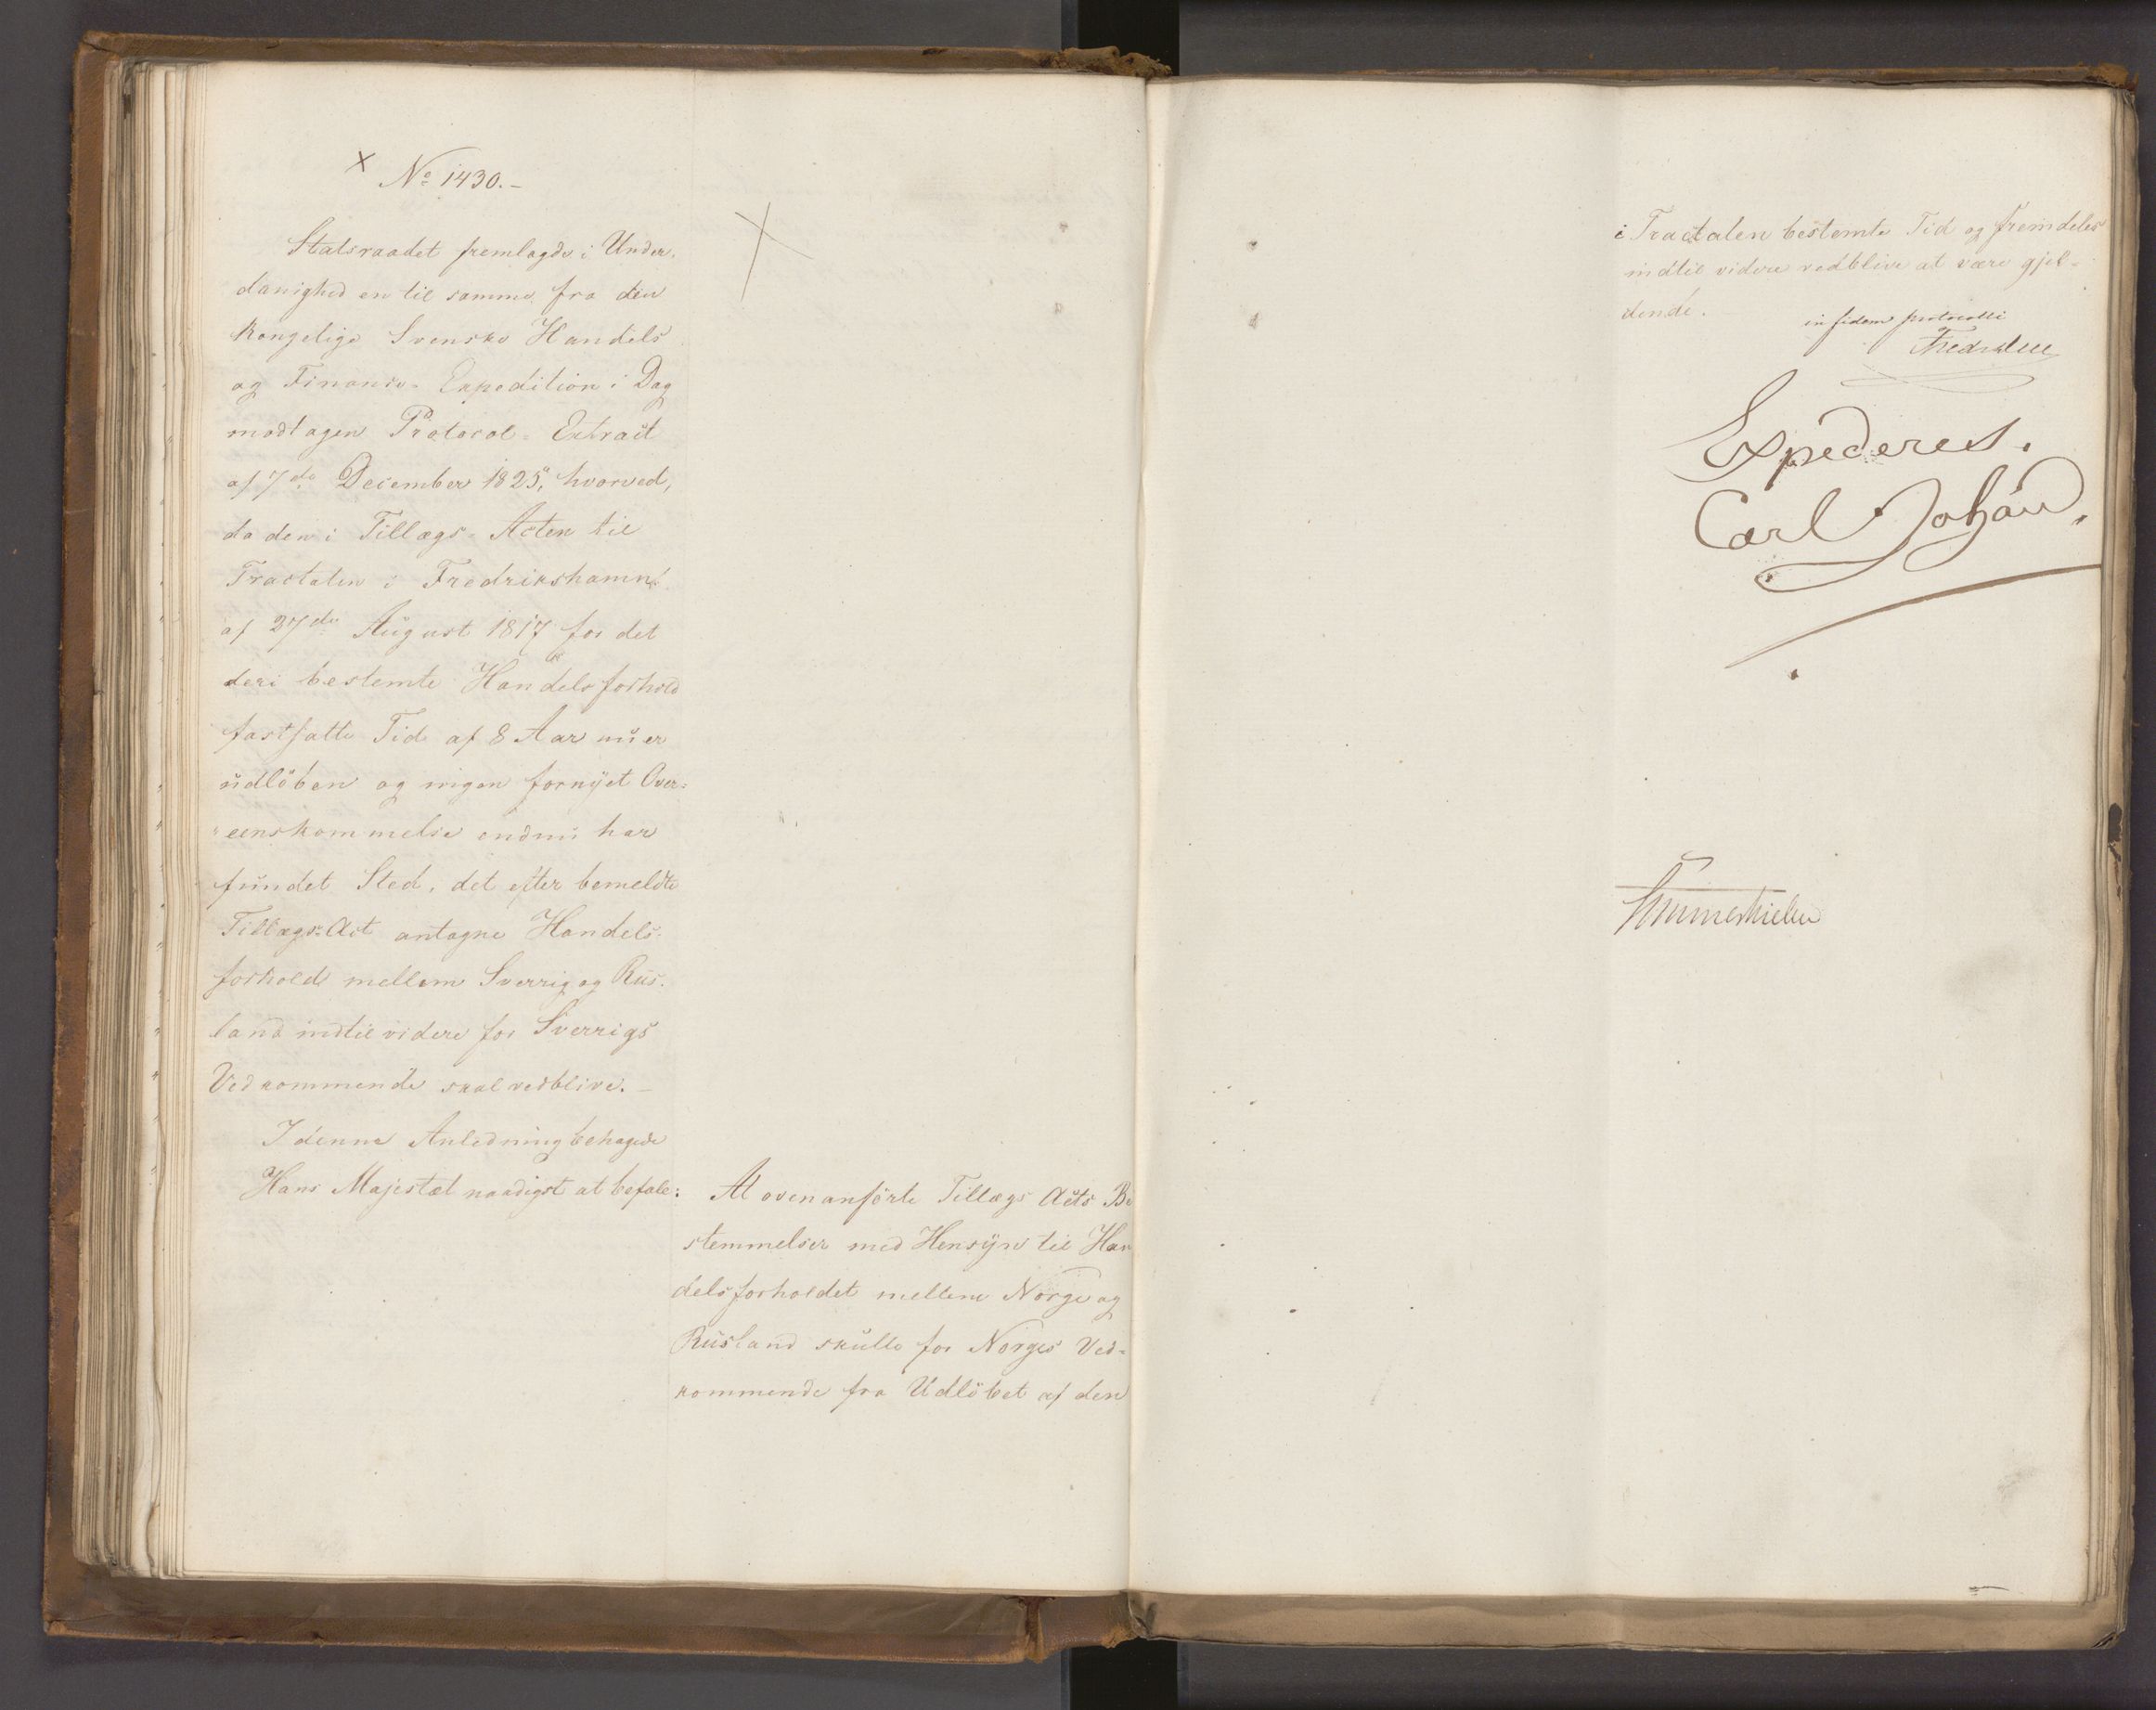 x No 1430.-
Statsraadet fremlagde i Under-
danighed en til samme fra den
Kongelige Svenske Handels
og Finants- Expedition i Dag
modtagen Protocol- Extract
af 7de December 1825, hvorved,
da den i Tillægs- Acten til
Tractaten i Fredrikshamn
af 27de August 1817 for det
deri bestemte Handelsforhold
fastsatte Tid af 8 Aar nu er
udløben og ingen fornyet Over-
eenskommelse endnu har
fundet Sted, det efter bemeldte
Tillægs-Act antagne Handels-
forhold mellem Sverrig og Rus-
land indtil videre for Sverrigs
Vedkommende skal vedblive. -
I denne Anledning behagede
Hans Majestæt naadigst at befale:
At ovenanförte Tillægs Acts Be
stemmelser med Hensyn til Han
delsforholdet mellem Norge og
Rusland skulle for Norges Ved-
kommende fra Udløbet af den
i Tractaten bestemte Tid og fremdeles
indtil videre vedblive at være gjel-
dende.
in fidem protocolli
Expederes.
Carl Johan